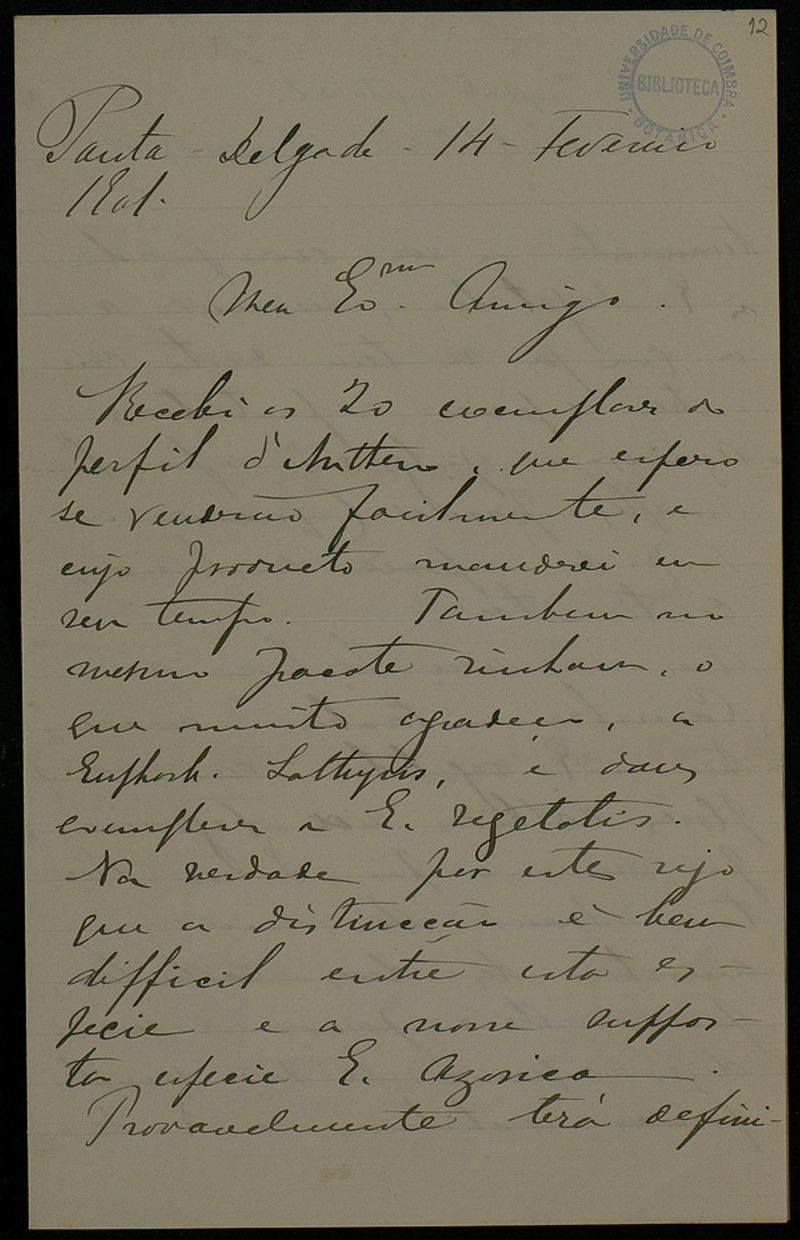 12
UNIVERSIDADE DE COIMBRA
BIBLIOTECA
BOTANICA
Ponta-Delgada-14-Fevereiro
1901.
Meu Exmo. Amigo.
Recebi os 20 exemplares do
perfil d'Anthero, que espero
se venderão facilmente, e
cujo producto mandarei em
seu tempo. Tambem no
mesmo pacote vinham, o
que muito agradeço, a
Euphorb. Lathyris, e dous
exemplares a E. segetalis.
Na verdade por estes vejo
que a distincção é bem
difficil entre esta es-
pecie e a nossa suppos-
ta especie E. Azorica.
Provavelmente terá defini-